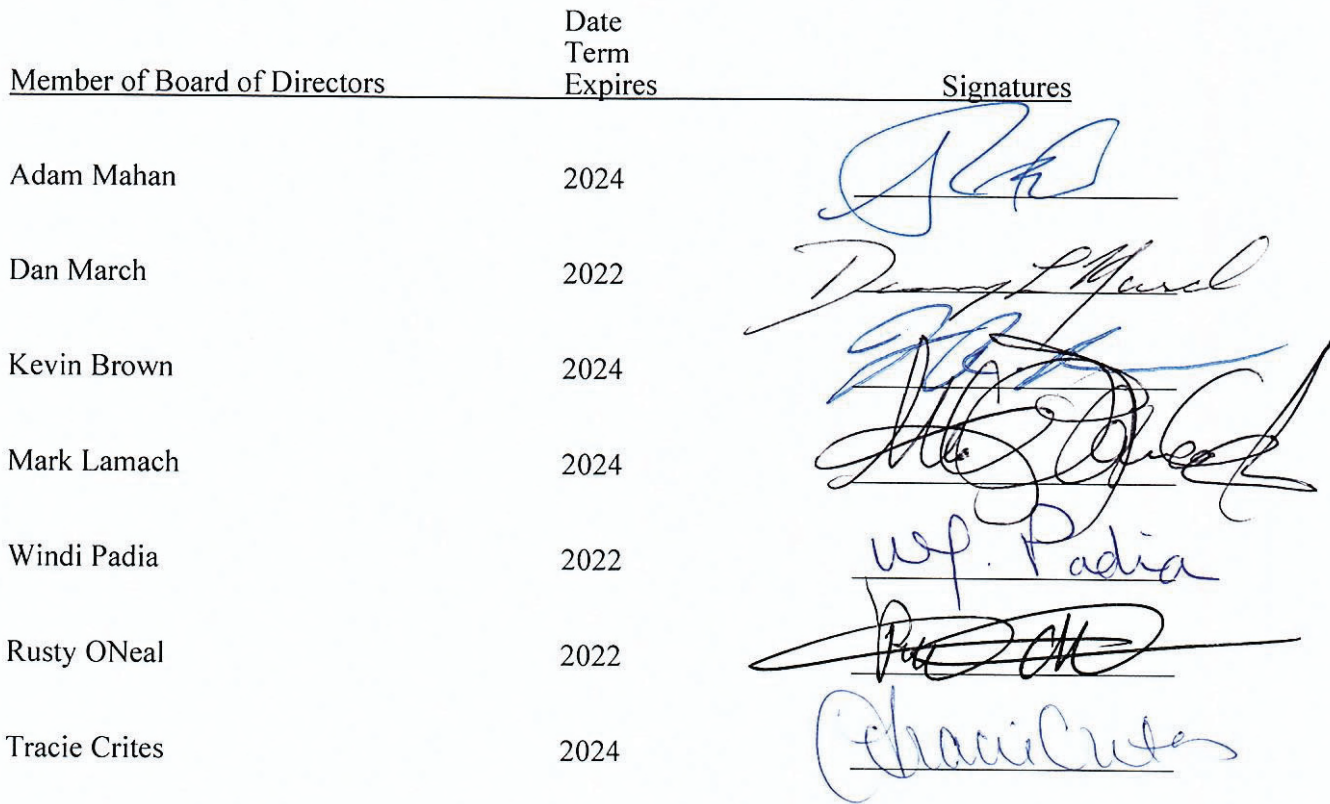 Date
Term
Member of Board of Directors Expires Signatures
Adam Mahan 2024
Dan March 2022
Kevin Brown 2024
Mark Lamach 2024
Windi Padia 2022 Padia
Rusty ONeal 2022
Tracie Crites 2024 Tracie Crites